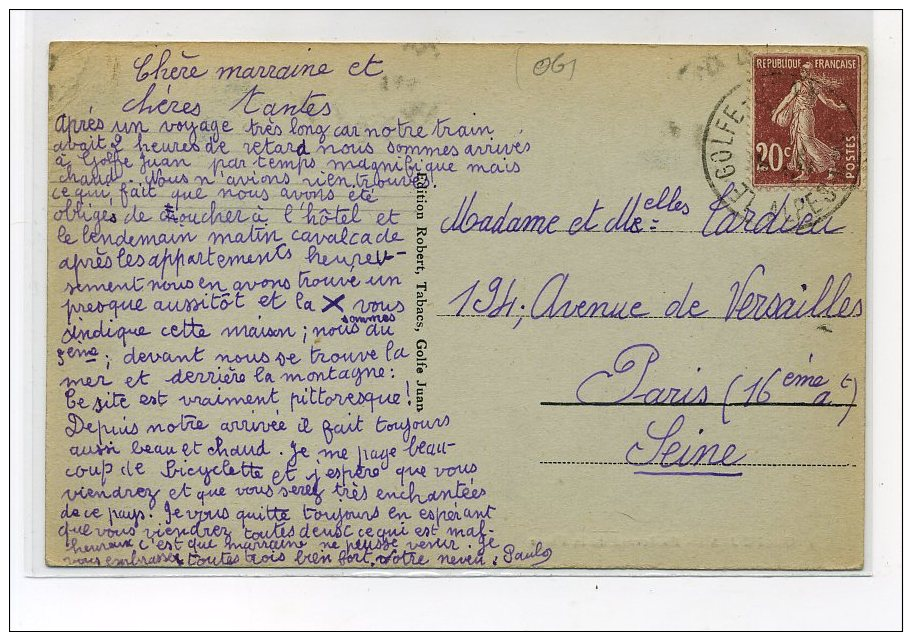 Chère marraine et
chères tantes
après un voyage très long car notre train
avait 2 heures de retard nous sommes arrivés
à Golfe Juan par temps magnifique mais
chaud. Nous n'avions rien trouvé
ce qui fait que nous avons été
obligés de coucher à l'hôtel et
le lendemain matin cavalcade
après les appartements heureu-
sement nous en avons trouvé un
presque aussitôt et la X vous
indique cette maison; nous sommes au
5ème; devant nous se trouve la
mer et derrière la montagne:
Ce site est vraiment pittoresque!
Depuis notre arrivée il fait toujours
aussi beau et chaud. Je me paye beau-
coup de bicyclette et j'espère que vous
viendrez et que vous serez très enchantées
de ce pays. Je vous quitte toujours en espérant
que vous viendrez toutes deux ce qui est mal-
heureux c'est que marraine ne puisse venir. Je
vous embrasse toutes trois bien fort, votre neveu: Paulo
Edition Robert, Tabacs, Golfe Juan
OG
REPUBLIQUE FRANÇAISE
20c
POSTES
LE GOLFE-
ALPES
Madame et Melles Cardieu
194, Avenue de Versailles
Paris (16ème at)
Seine